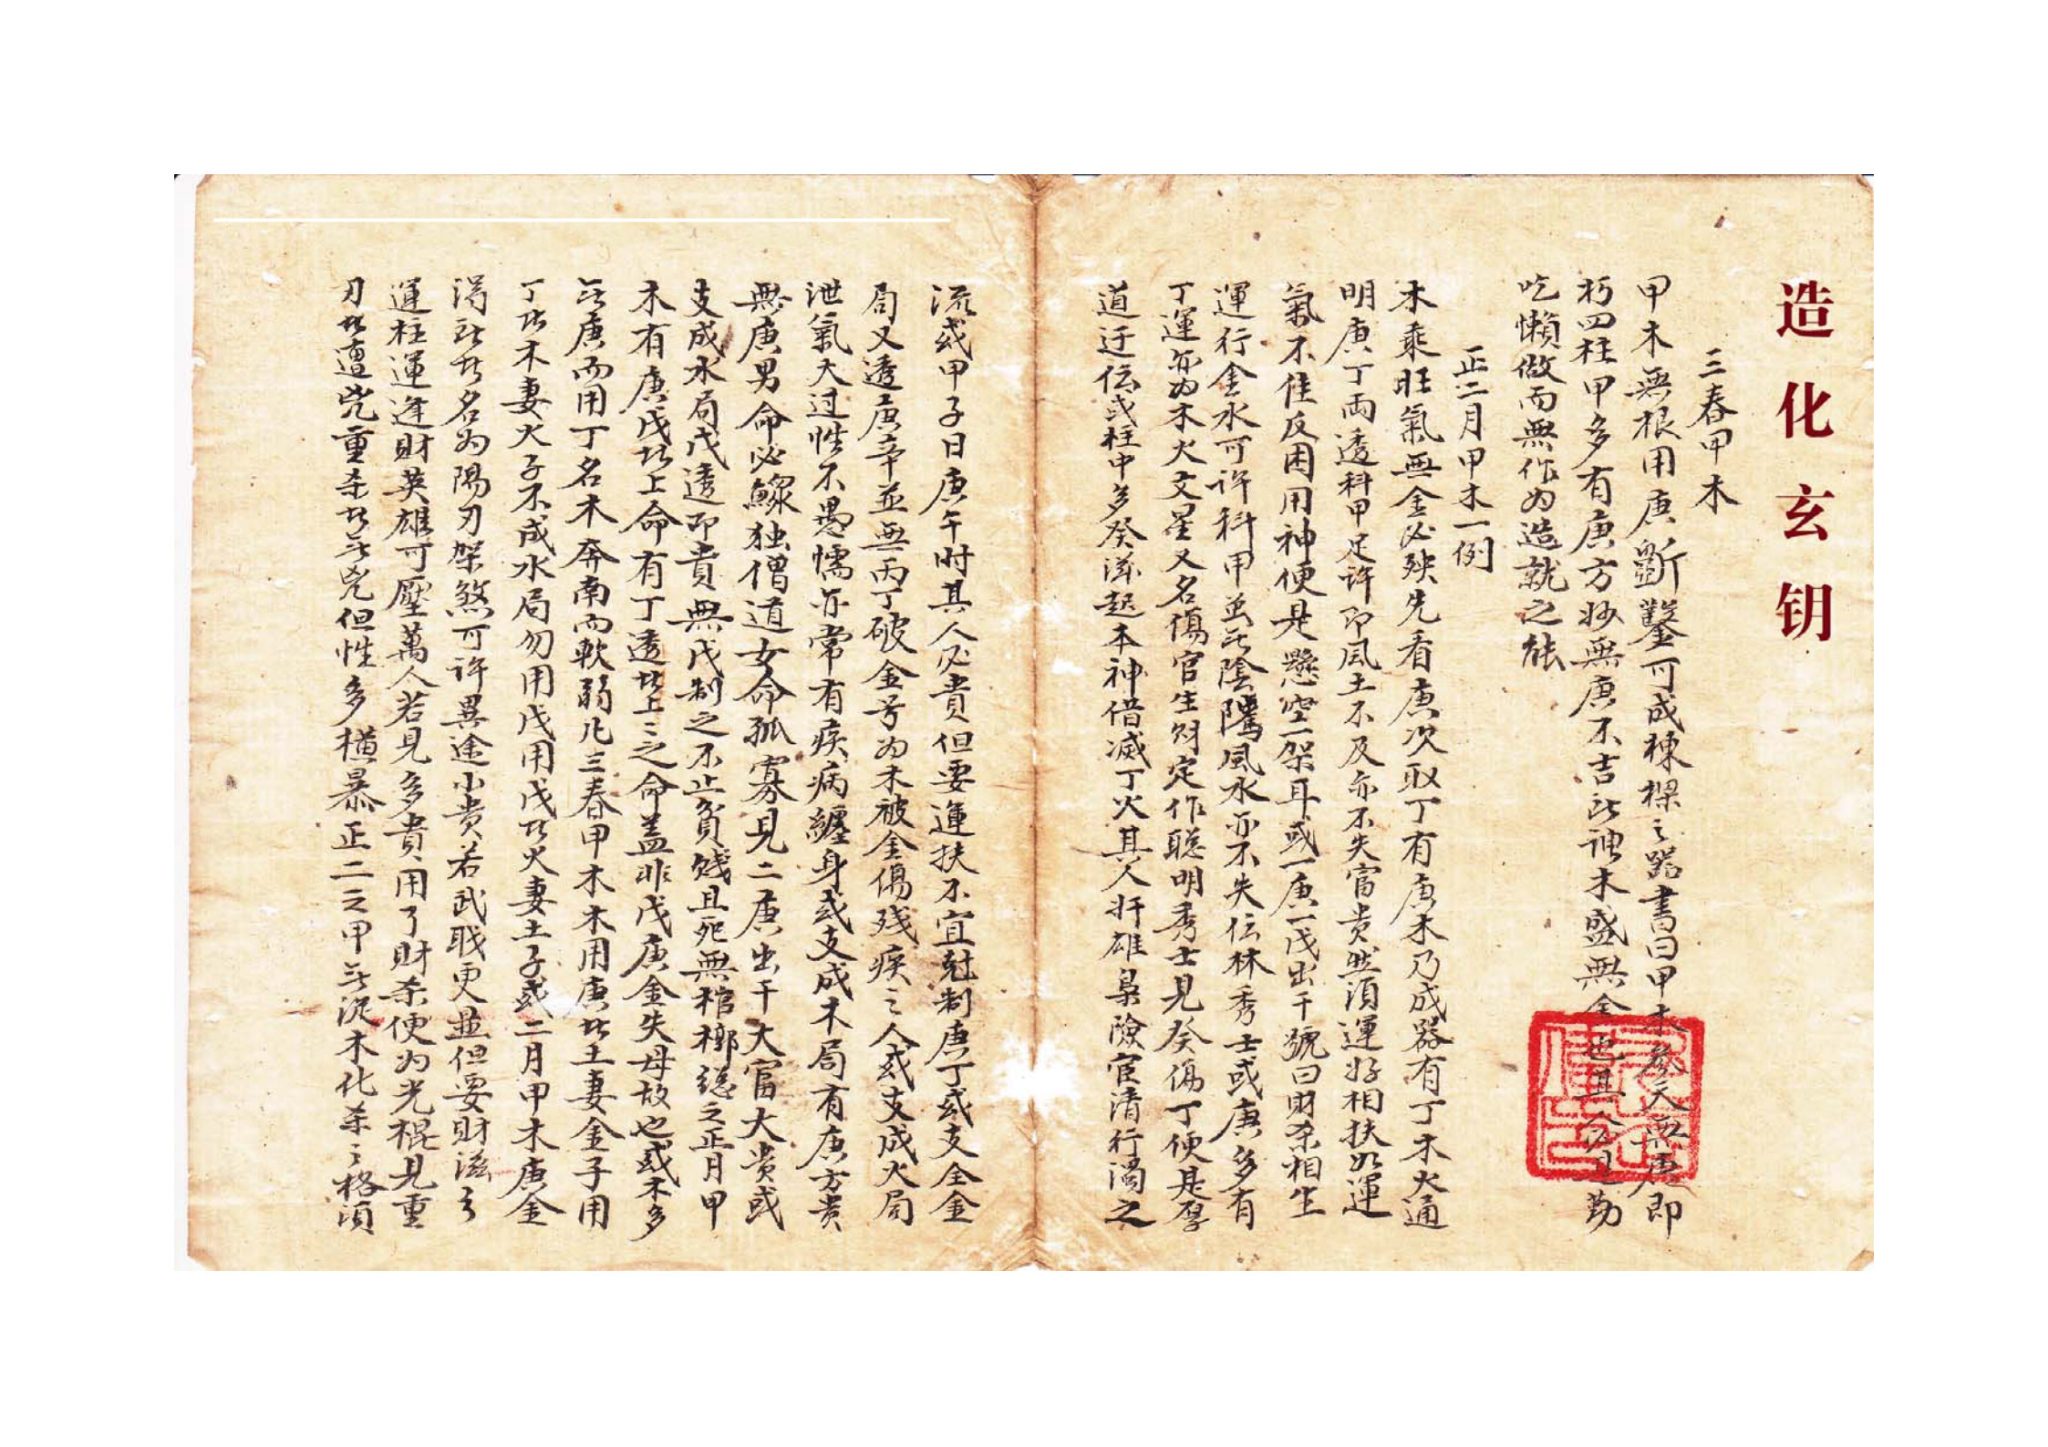 造化玄钥
三春甲木
甲木無根用庚斲鑿可成棟樑之器書曰甲木參天無庚即
朽四柱甲多有庚方妙無庚不吉此神木盛無金也其人必見勤
吃懶做而無作为造就之能
正二月甲木一例
木乘旺氣無金必殃先看庚次取丁有庚木乃成器有丁木火通
明庚丁兩透科甲足許即風土不及亦不失富贵然須運好相扶如運
氣不佳反困用神便是懸空一架耳或一庚一戊出干號曰財杀相生
運行金水可许科甲若无陰隲風水亦不失伝林秀士或庚多有
丁運亦为木火文星又名傷官生財定作聪明秀士見癸傷丁便是厚
道迂伝或柱中多癸滋起本神借滅丁火其人奸雄梟險宦清行濁之
流或甲子日庚午时其人必貴但要運扶不宜尅制庚丁或支全金
局又透庚辛並無丙丁破金号为木被金傷残疾之人或支成火局
泄氣太过性不愚懦亦常有疾病纏身或支成木局有庚方贵
無庚男命必鰥独僧道女命孤寡見二庚出干大富大贵或
支成水局戊透即貴無戊制之不止貧賤且死無棺槨総之正月甲
木有庚戊者上命有丁透者上上之命盖非戊庚金失母故也或木多
无庚而用丁名木奔南而軟弱凡三春甲木木用庚者土妻金子用
丁者木妻火子不成水局勿用戊用戊者火妻土子或二月甲木庚金
得所者名为陽刃架煞可许異途小貴若武职更显但要財滋之
運柱運逢財英雄可壓萬人若見多貴用了財杀便为光棍見重
刃者遭兇重杀者无兇但性多橫暴正二之甲无從木化杀之格須